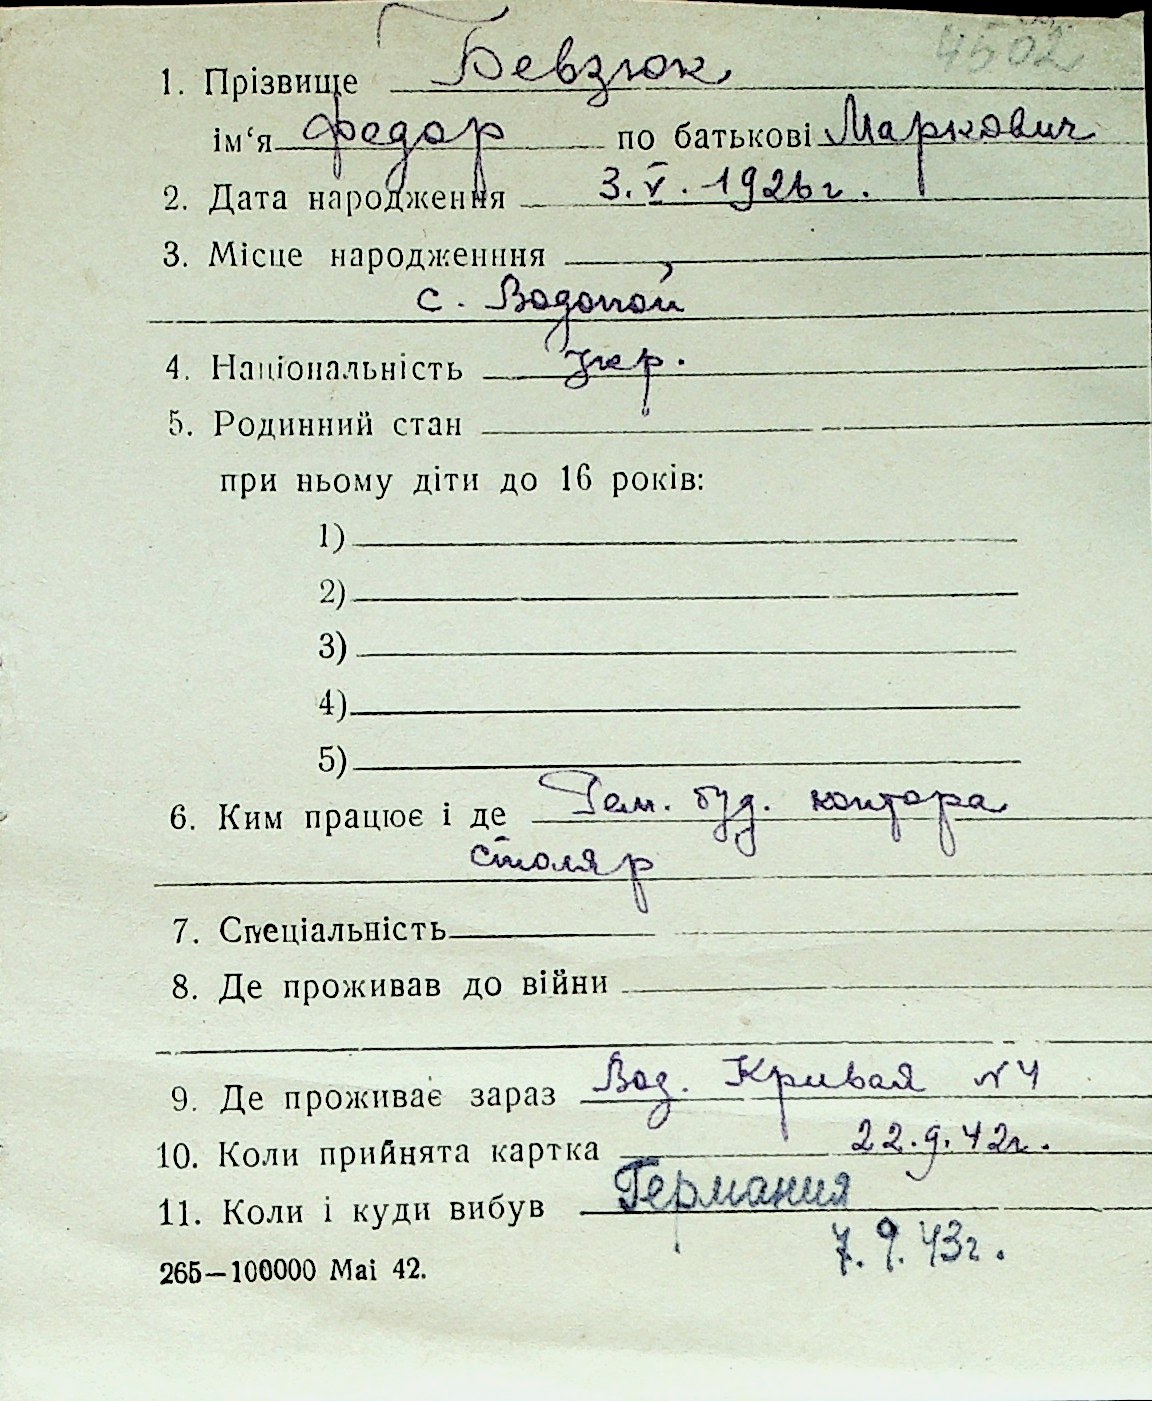 4502
1. Прізвище Бевзюк
ім‘я Федор по батькові Маркович
2. Дата народження 3.V.1926г.
3. Місце народженння
с. Водопой
4. Національність укр.
5. Родинний стан
при ньому діти до 16 років:
1)
2)
3)
4)
5)
6. Ким працює і де Рем. буд. контора
столяр
7. Спеціальність
8. Де проживав до війни
9. Де проживає зараз Вод. Кривая №4
10. Коли прийнята картка 22.9.42г.
11. Коли і куди вибув Германия
7.9.43г.
265—100000 Mai 42.